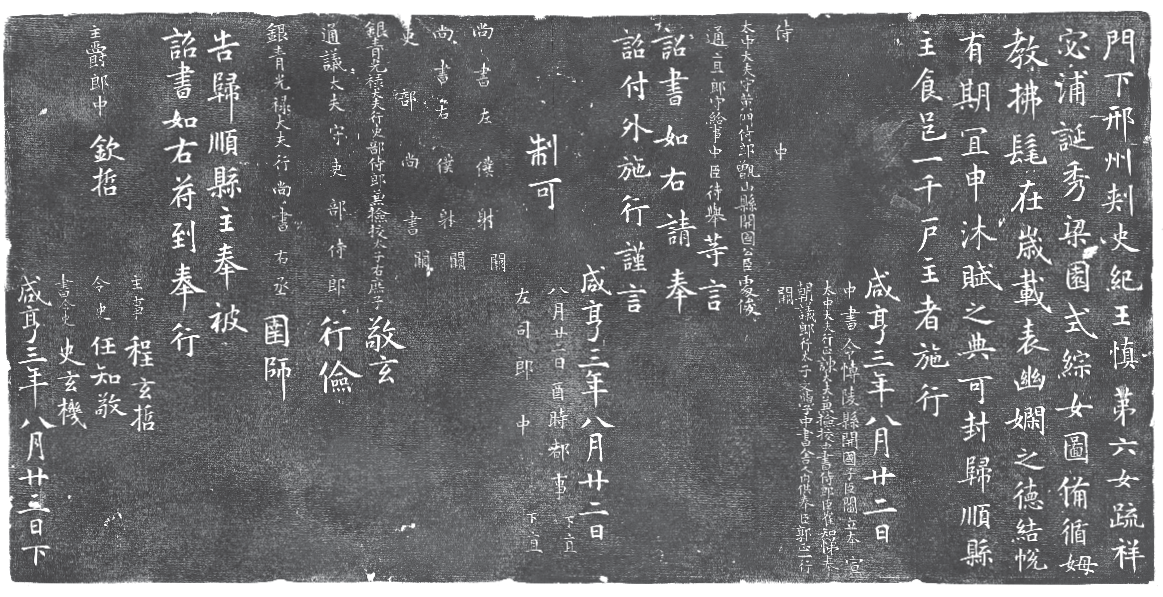 門下邢州刺史紀王慎第六女疏祥
宓浦誕秀梁園式綜女圖備循姆
教拂髦在歲載表幽嫻之德結帨
有期宜申沐賦之典可封歸順縣
主食邑一千戶主者施行
咸亨三年八月廿二日
中書令博陵縣開國子臣閻立本宣
太中大夫行諫議大夫兼檢校中書侍郎臣崔知悌奉
朝議郎行太子文學守中書舍人內供奉臣郭正一行
侍中闕
太中大夫守黃門侍郎甑山縣開國公臣處俊
通直郎守給事中臣待舉等言
詔書如右請奉
詔付外施行謹言
咸亨三年八月廿二日
制可
八月廿二日酉時都事下直
左司郎中下直
尚書左僕射闕
尚書右僕射闕
吏部尚書闕
銀青光祿大夫行吏部侍郎兼檢校太子右庶子敬玄
通議大夫守吏部侍郎行儉
銀青光祿大夫行尚書右丞圉師
告歸順縣主奉被
詔書如右苻到奉行
主爵郎中欽哲
主事程玄哲
令史任知敬
書令史史玄機
咸亨三年八月廿二日下